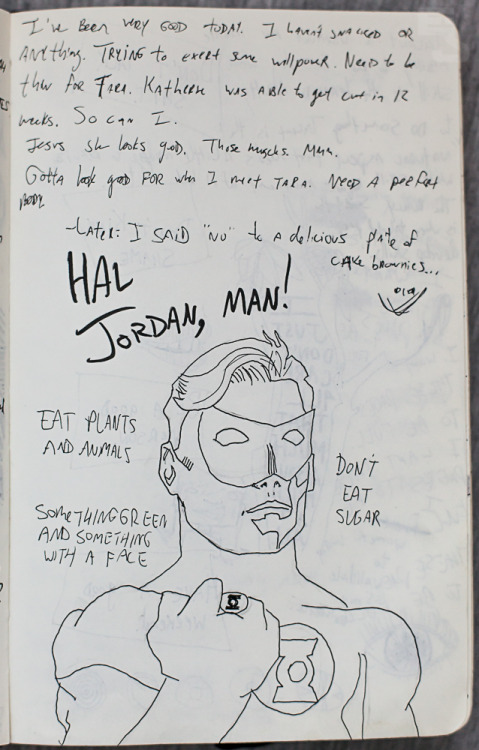 I've been very good today. I haven't snacked or
anything. Trying to exert some willpower. Need to be
thin for Tara. Katherine was able to get cut in 12
weeks. So can I.
Jesus she looks good. Those muscles. Mmm.
Gotta look good for when I meet Tara. Need a perfect
body.
-Later: I said "no" to a delicious plate of
cake brownies...
HAL
JORDAN, MAN!
EAT PLANTS
AND ANIMALS
DON'T
EAT
SUGAR
SOMETHING GREEN
AND SOMETHING
WITH A FACE